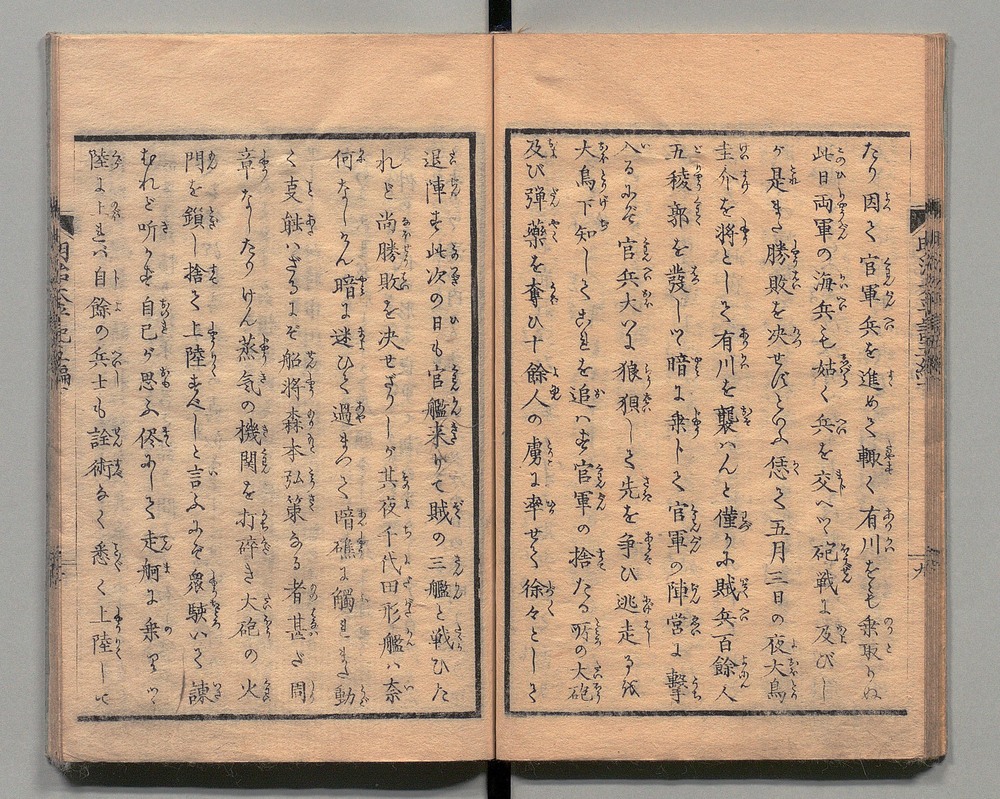 たり因て官軍兵を進めて輙く有川をも乗取りぬ
此日両軍の海兵も姑く兵を交へつ砲戦に及びし
が是また勝敗を决せずといふ恁て五月三日の夜大鳥
圭介を将として有川を襲はんと僅かに賊兵百餘人
五稜郭を發しつ暗に乗じて官軍の陣営に撃
入るにぞ官兵大いに狼狽して先を争ひ逃走るを
大鳥下知してこれを追はせ官軍の捨たる所の大砲
及び弾薬を奪ひ十餘人の虜を率せて徐々として
退陣す此次の日も官艦来りて賊の三艦と戦ひた
れど尚勝敗を决せざりしが其夜千代田形艦ハ奈
何なしけん暗に迷ひて過まつて暗礁に觸れまた動
く事能はざるにぞ船将森本弘策なる者甚だ周
章なしたりけん蒸気の機関を打碎き大砲の火
門を鎖し捨て上陸すべしと言ふにぞ衆駭いて諌
むれど听かず自己が思ふ侭にして走舸に乗りつ
陸に上れば自餘の兵士も詮術なく悉く上陸して
明治太平記五編
九